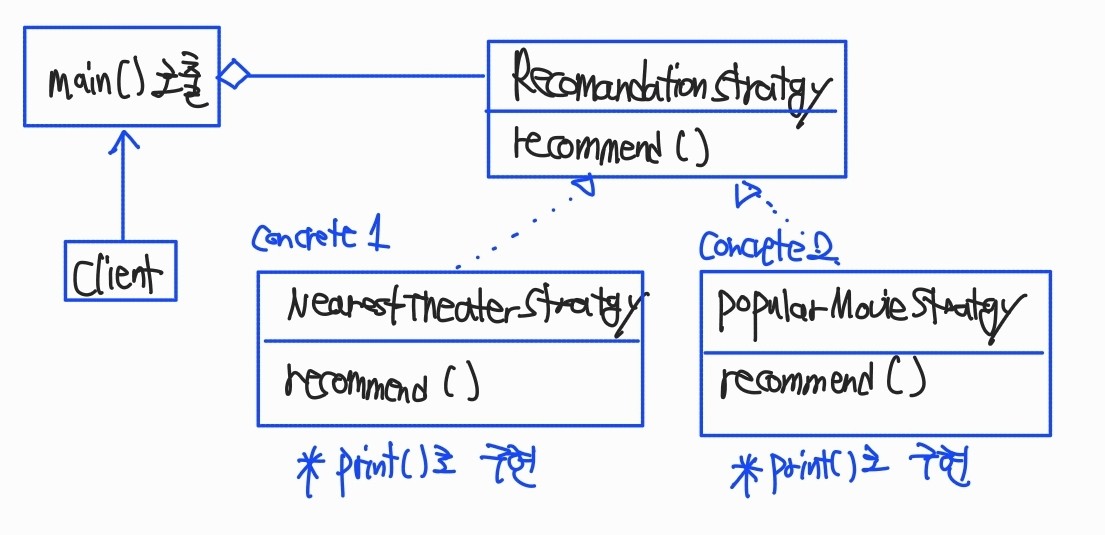 main() 호출
RecomandationStratgy
recommend()
Client
Concrete 1
NearestTheaterStratgy
recommend()
* print()로 구현
Concrete 2
popularMovieStratgy
recommend()
* print()로 구현